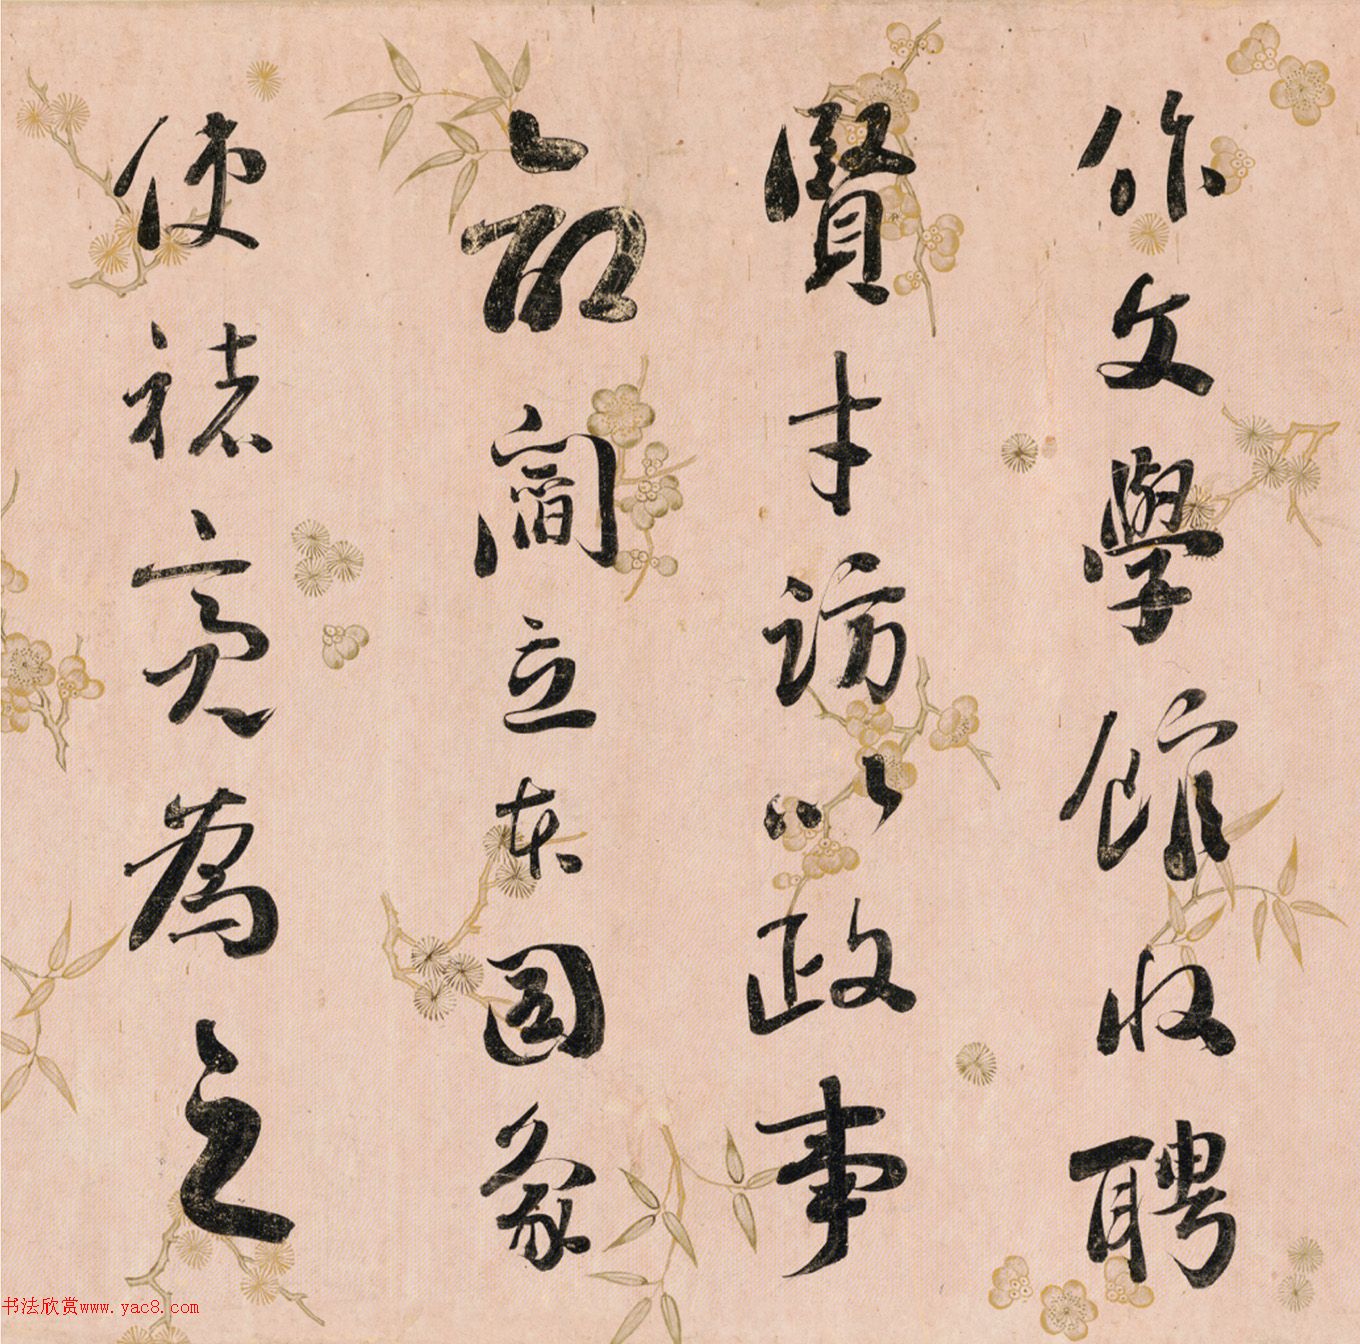 作文學館收聘
賢才訪以政事
命閻立本圖象
使褚亮為之
书法欣赏www.yac8.com